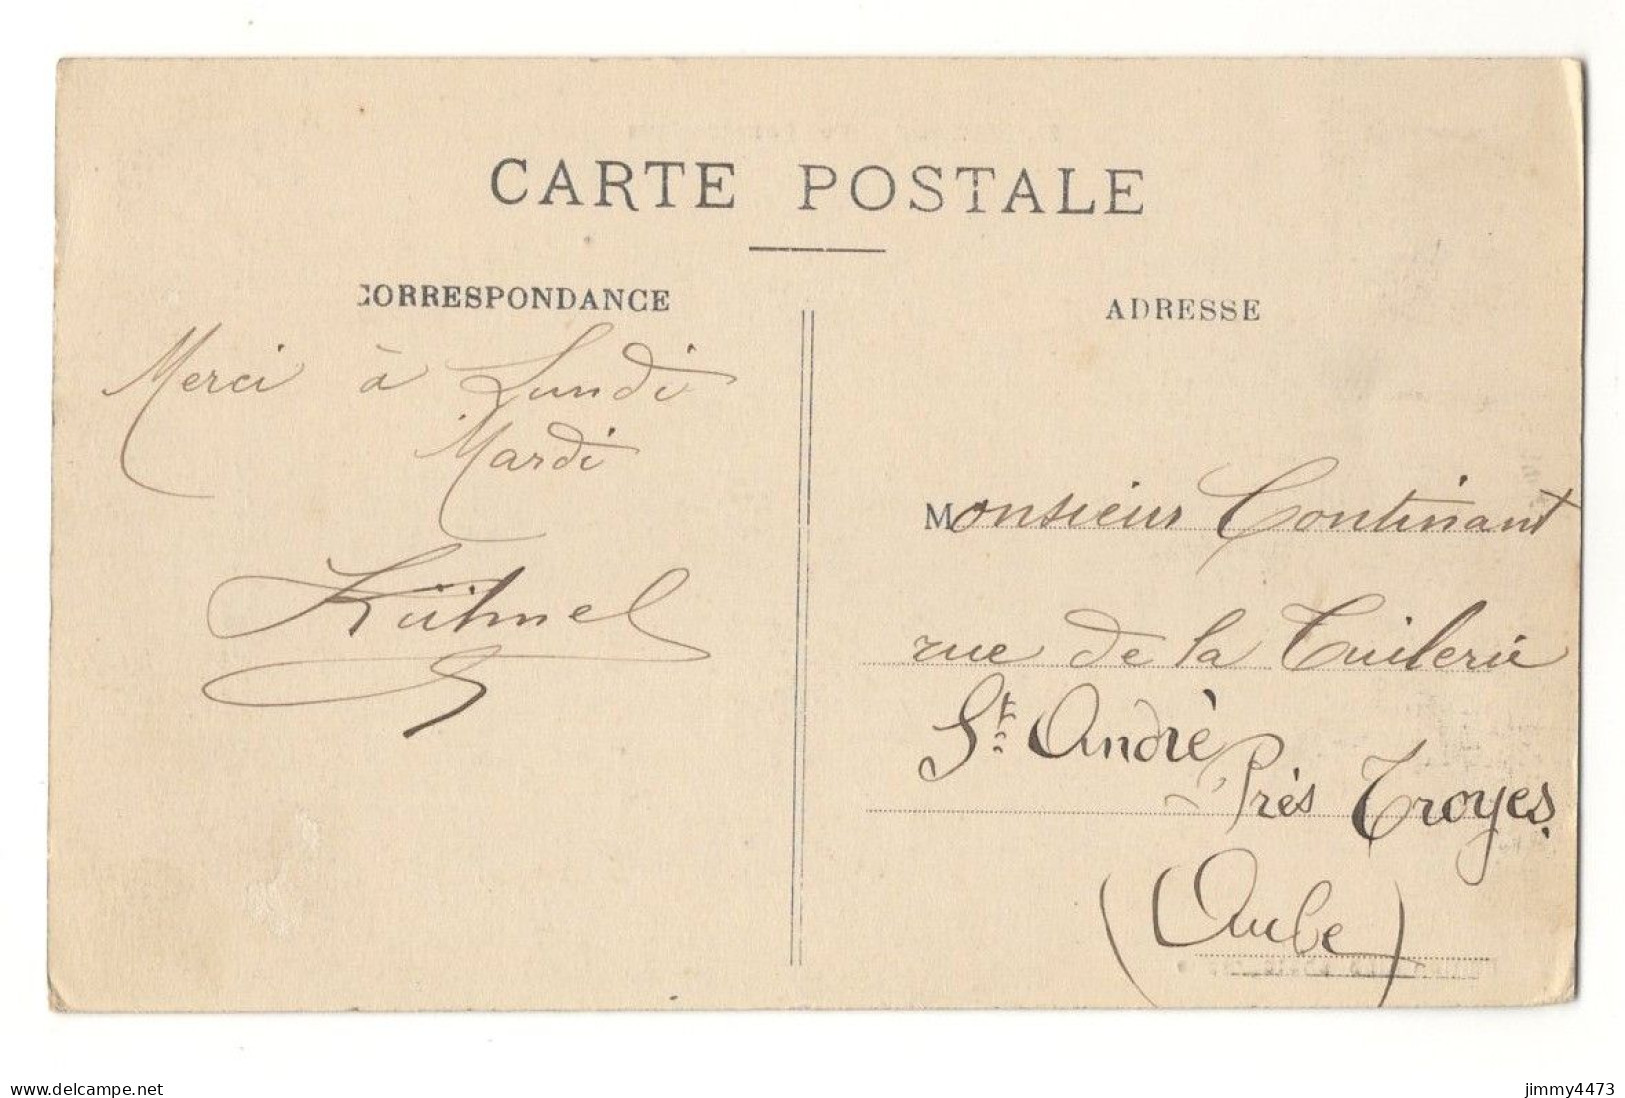 CARTE POSTALE
CORRESPONDANCE
Merci à Lundi
Mardi
Kühnel
ADRESSE
Monsieur Continant
rue de la Tuilerie
St. Andrè
Près Troyes.
(Aube)
www.delcampe.net
jimmy4473